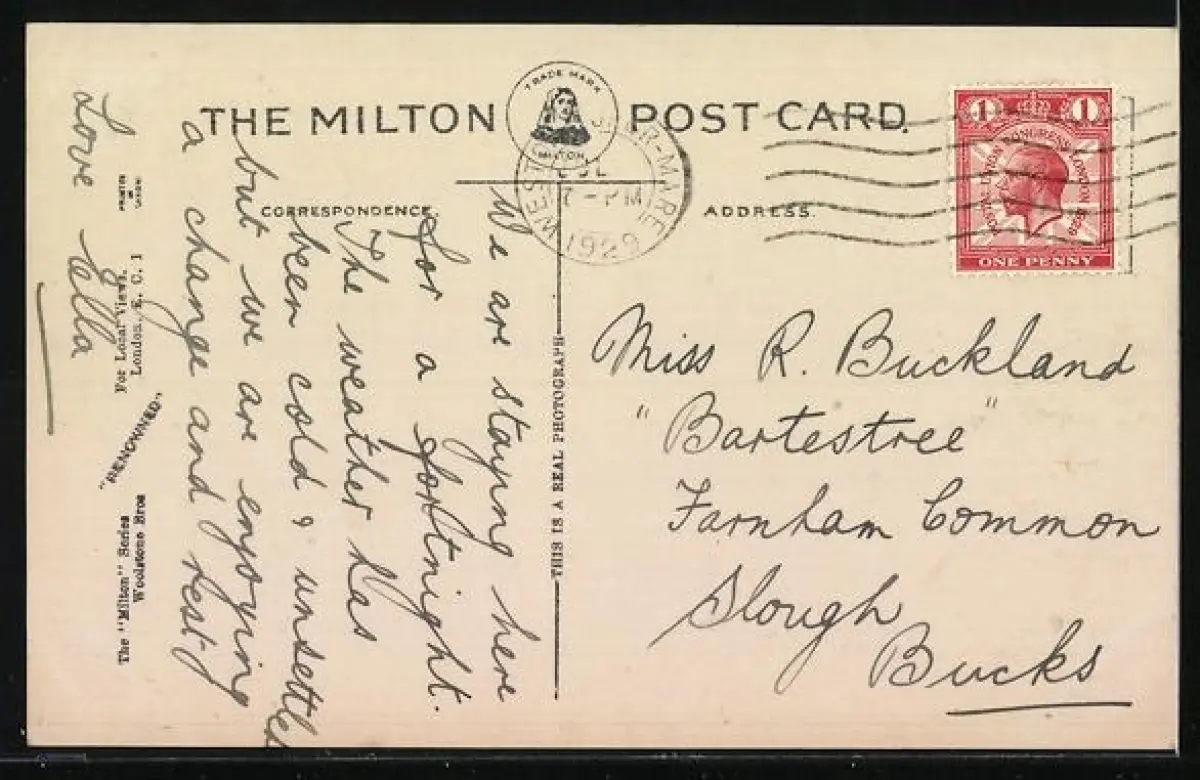 THE MILTON POST CARD.
TRADE MARK
MILTON
CORRESPONDENCE
ADDRESS.
WESTON-SUPER-MARE
7 - PM
1929
1 1
POSTAL UNION CONGRESS LONDON 1929
ONE PENNY
We are staying here
for a fortnight.
The weather has
been cold & unsettled
but we are enjoying
a change and rest
Love Nella
THIS IS A REAL PHOTOGRAPH
Miss R. Buckland
"Bartestree"
Farnham Common
Slough
Bucks
The "Milton" Series
Woolstone Bros
"RENOWNED"
For Local Views.
London. E. C. 1
PRINTED
IN